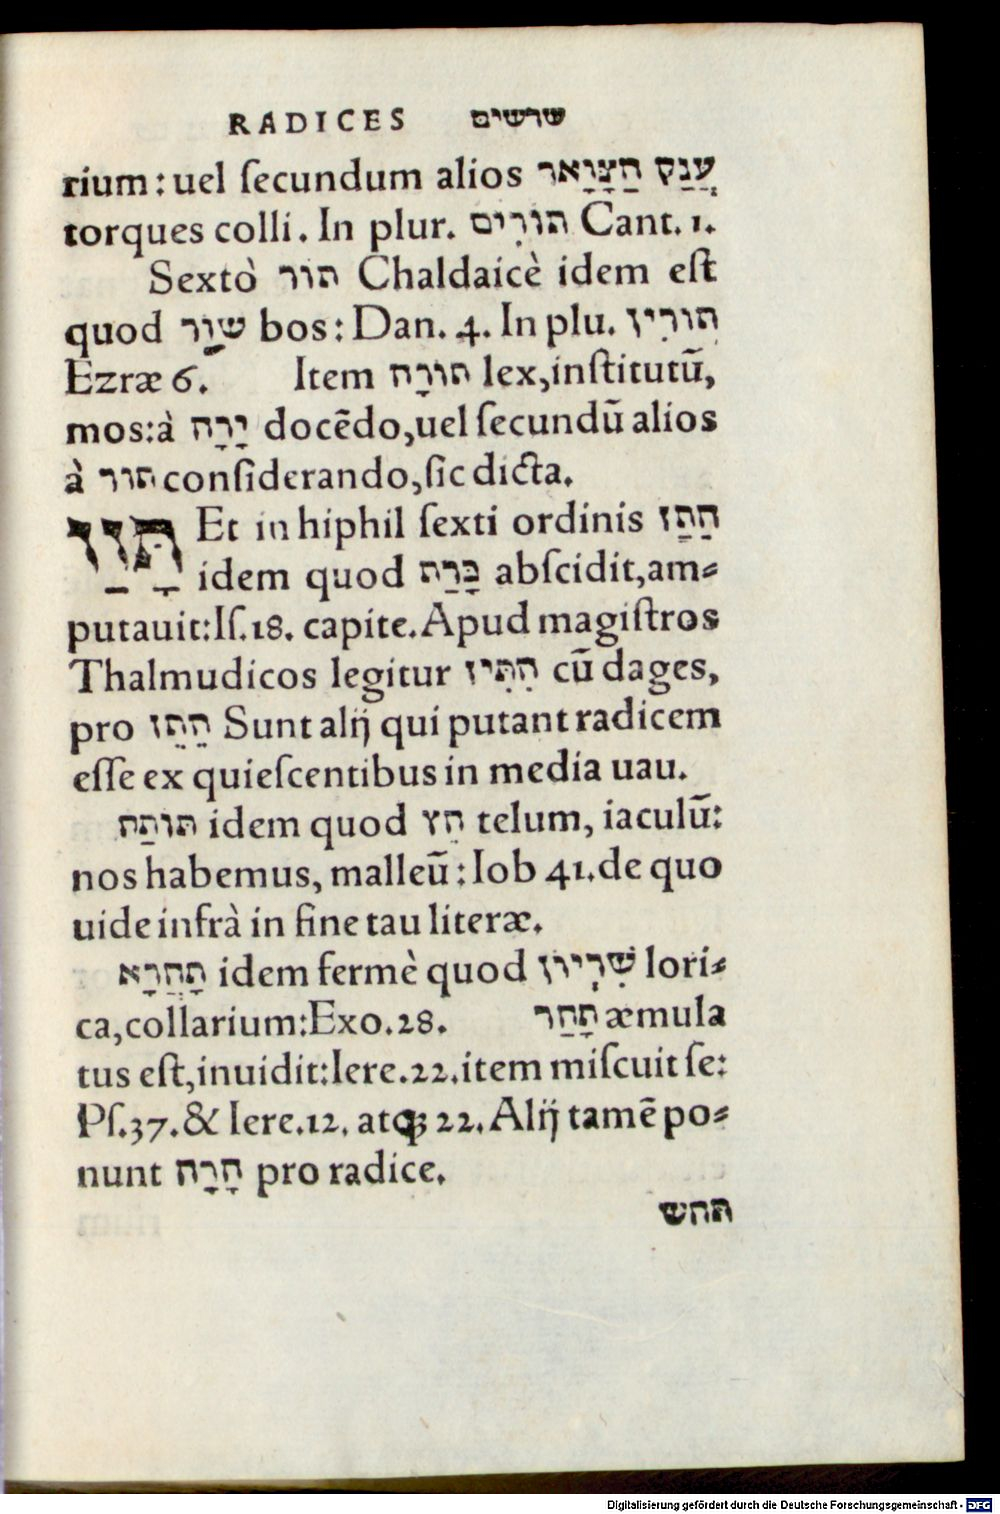 RADICES שרשים
rium: uel ſecundum alios עֲנַק הַצָּוָאר
torques colli. In plur. תּוֹרִים Cant. 1.
Sextò תור Chaldaicè idem eſt
quod שׁוֹר bos: Dan. 4. In plu. תוֹרִין
Ezræ 6. Item תּוֹרָה lex, inſtitutū,
mos: à יָרָה docēdo, uel ſecundū alios
à תור conſiderando, ſic dicta.
תָּזַז Et in hiphil ſexti ordinis הֵתַז
idem quod כָּרַת abſcidit, am⸗
putauit: Iſ. 18. capite. Apud magiſtros
Thalmudicos legitur הִתִּיז cū dages,
pro הֵתֵז Sunt alij qui putant radicem
eſſe ex quieſcentibus in media uau.
תּוֹתַח idem quod חֵץ telum, iaculū:
nos habemus, malleū: Iob 41. de quo
uide infrà in fine tau literæ.
תַחֲרָא idem fermè quod שִׁרְיוֹן lori⸗
ca, collarium: Exo. 28. תָּחַר æmula
tus eſt, inuidit: Iere. 22. item miſcuit ſe:
Pſ. 37. & Iere. 12. atꝙ 22. Alij tamē po⸗
nunt חָרָה pro radice.
תחש
Digitalisierung gefördert durch die Deutsche Forschungsgemeinschaft - DFG